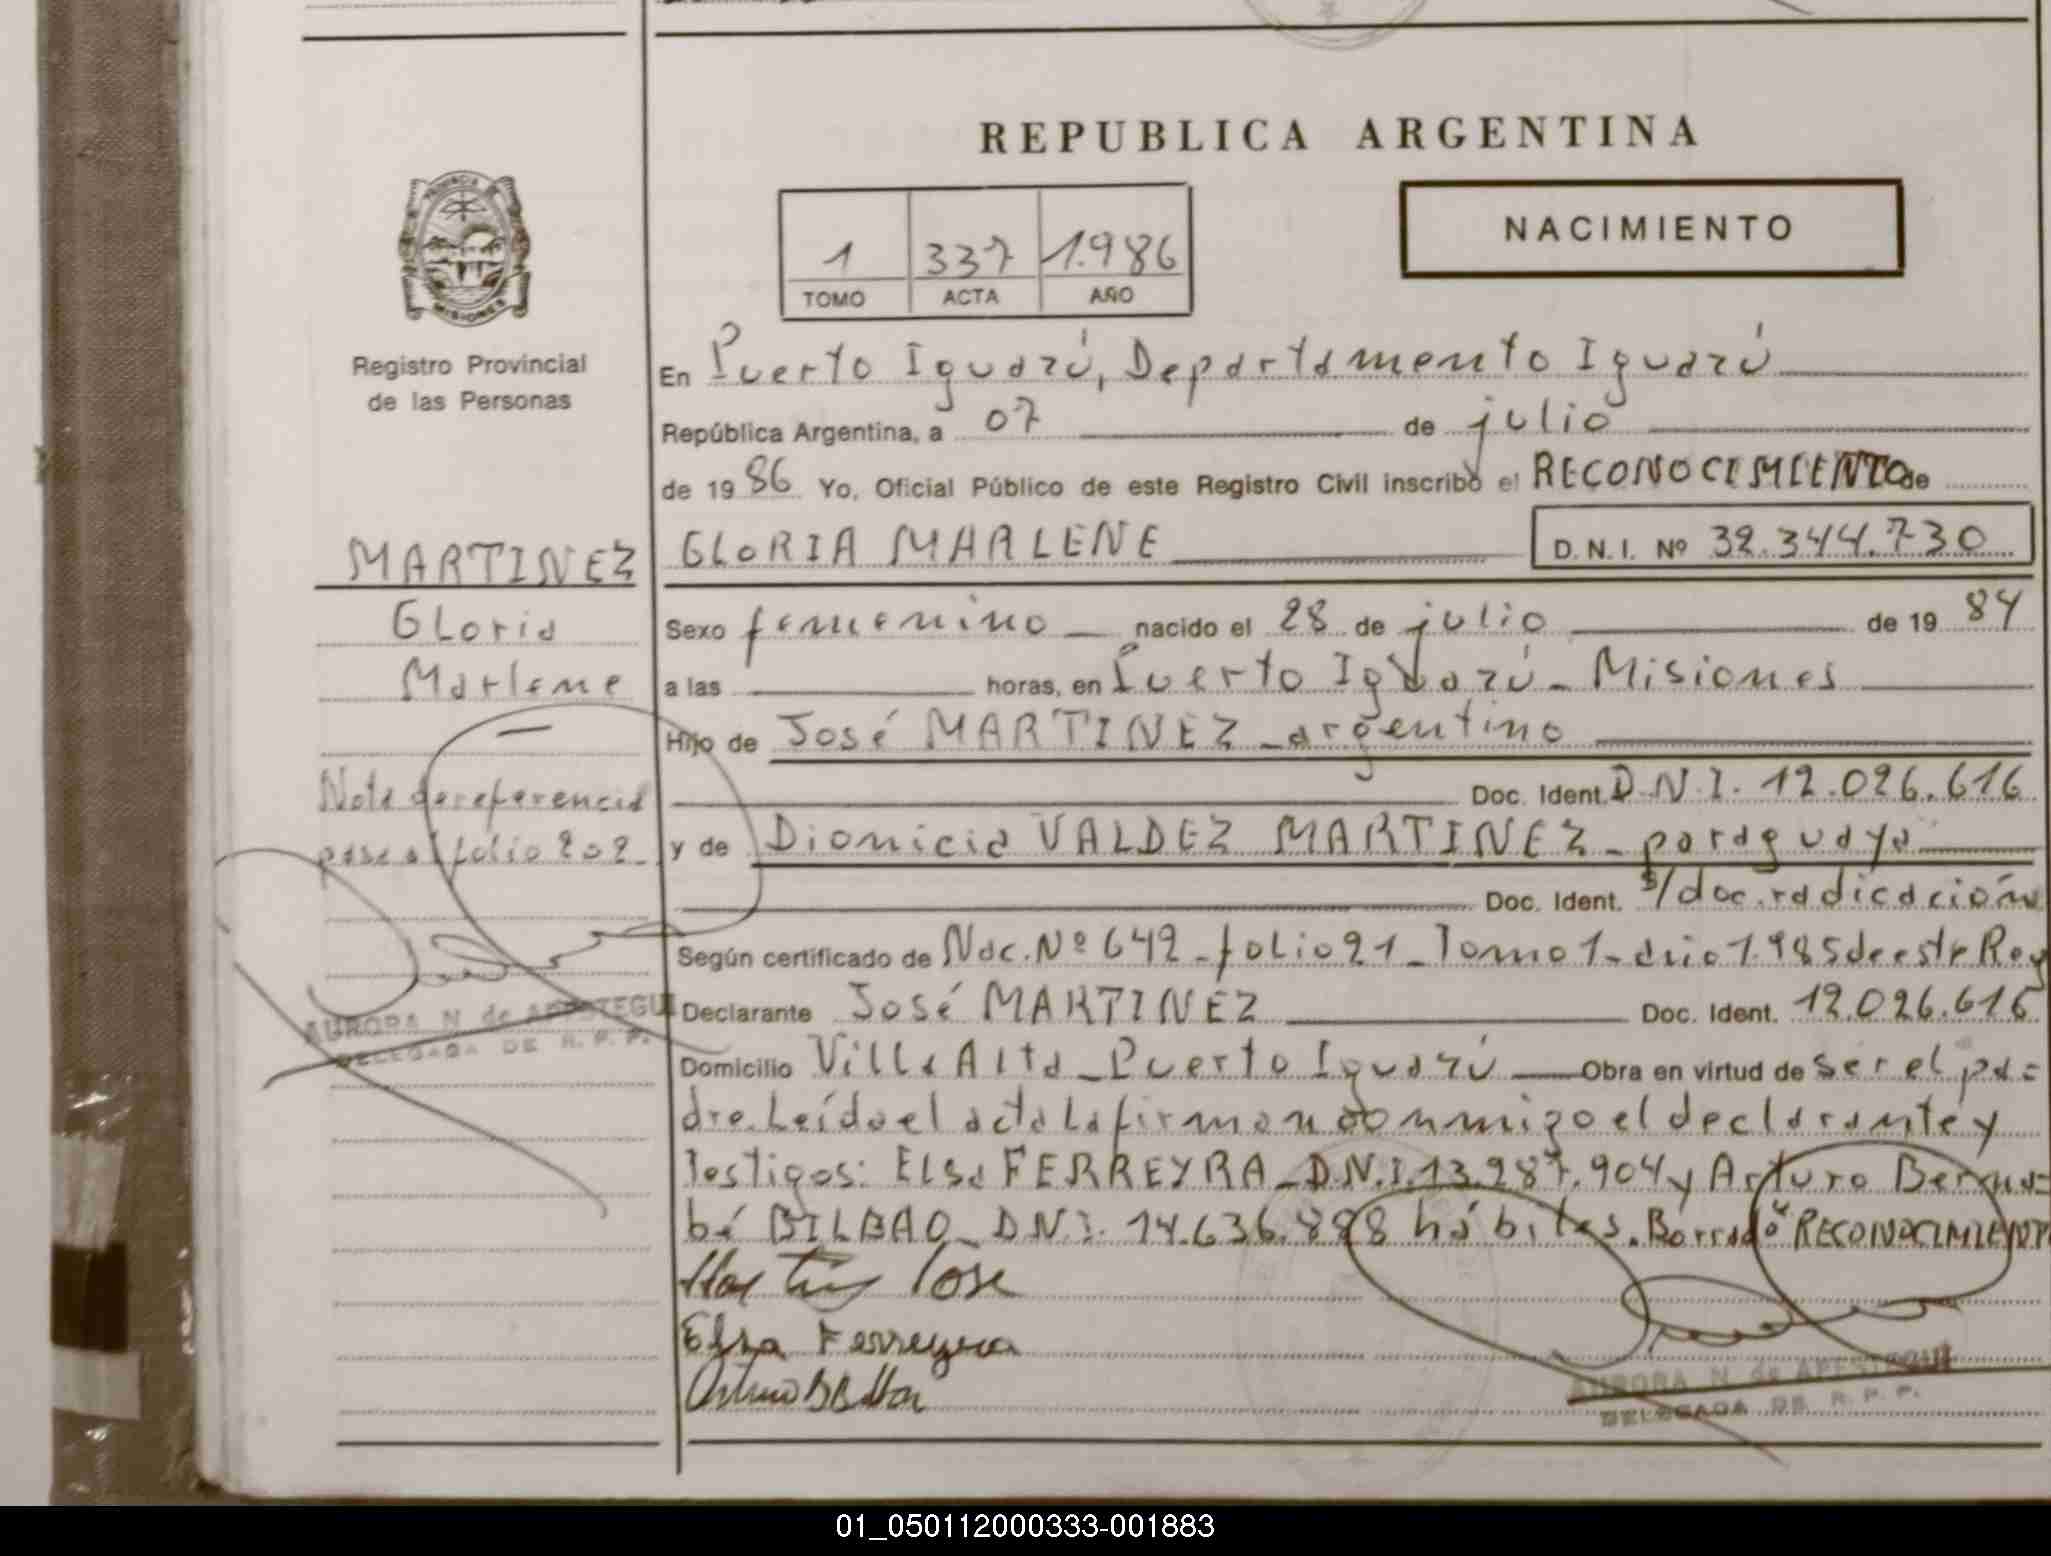 REPUBLICA ARGENTINA
PROVINCIA DE
MISIONES
Registro Provincial
de las Personas
1 337 1.986
TOMO ACTA AÑO
NACIMIENTO
En Puerto Iguazú, Departamento Iguazú
República Argentina, a 07 de julio
de 1986 Yo, Oficial Público de este Registro Civil inscribo el RECONOCIMIENTO de
GLORIA MARLENE D.N.I. Nº 32.344.730
Sexo femenino nacido el 28 de julio de 1984
a las horas, en Puerto Iguazú_ Misiones
Hijo de José MARTINEZ_argentino
Doc. Ident. D.N.I. 12.026.616
y de Dionicia VALDEZ MARTINEZ_paraguaya
Doc. Ident. s/doc.radicación
Según certificado de Nac.Nº 642_folio 21_Tomo 1_año 1.985 de este Reg
Declarante José MARTINEZ Doc. Ident. 12.026.616
Domicilio Villa Alta_Puerto Iguazú Obra en virtud de ser el pa=
dre. Leída el acta la firman conmigo el declarante y
Testigos: Elsa FERREYRA_D.N.I. 13.287.904 y Arturo Berna=
bé BILBAO_D.N.I. 14.636.888 hábiles. Borrado "RECONOCIMIENT
Martinez Jose
Elsa Ferreyra
Arturo B Bilbao
AURORA N de APESTEGUI
DELEGADA DE R. P. P.
MARTINEZ
Gloria
Marlene
Nota de referencia
pase al folio 202
AURORA N de APESTEGUI
DELEGADA DE R. P. P.
01_050112000333-001883